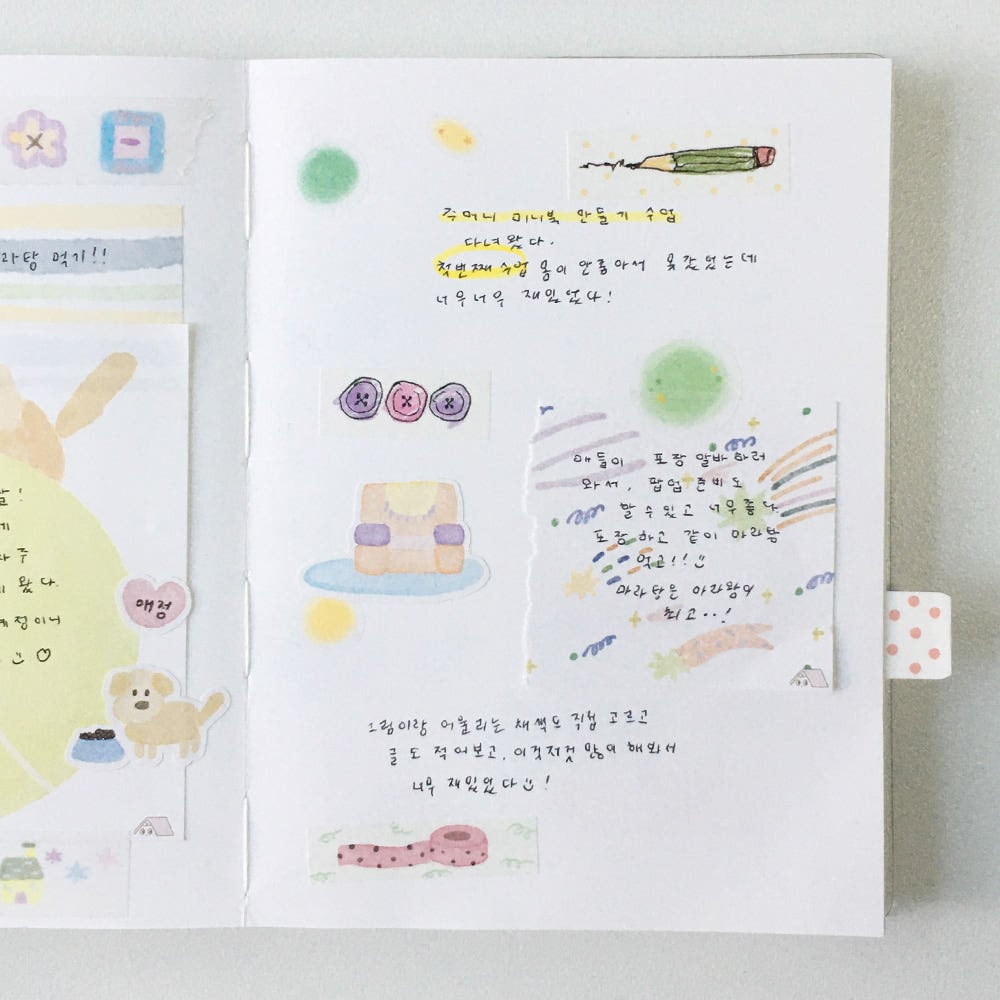 라탕 먹기!!
주머니 미니북 만들기 수업
다녀왔다.
첫번째 수업 몸이 안좋아서 못갔었는데
너무너무 재밌었다!
애들이 포장알바하러
와서, 팝업 준비도
할 수 있고 너무좋다
포장하고 같이 마라탕
먹고!!
마라탕은 마라왕이
최고..!
애정
왔다.
계정이니
그림이랑 어울리는 채색도 직접 고르고
글도 적어보고, 이것저것 많이 해와서
너무 재밌었다 !